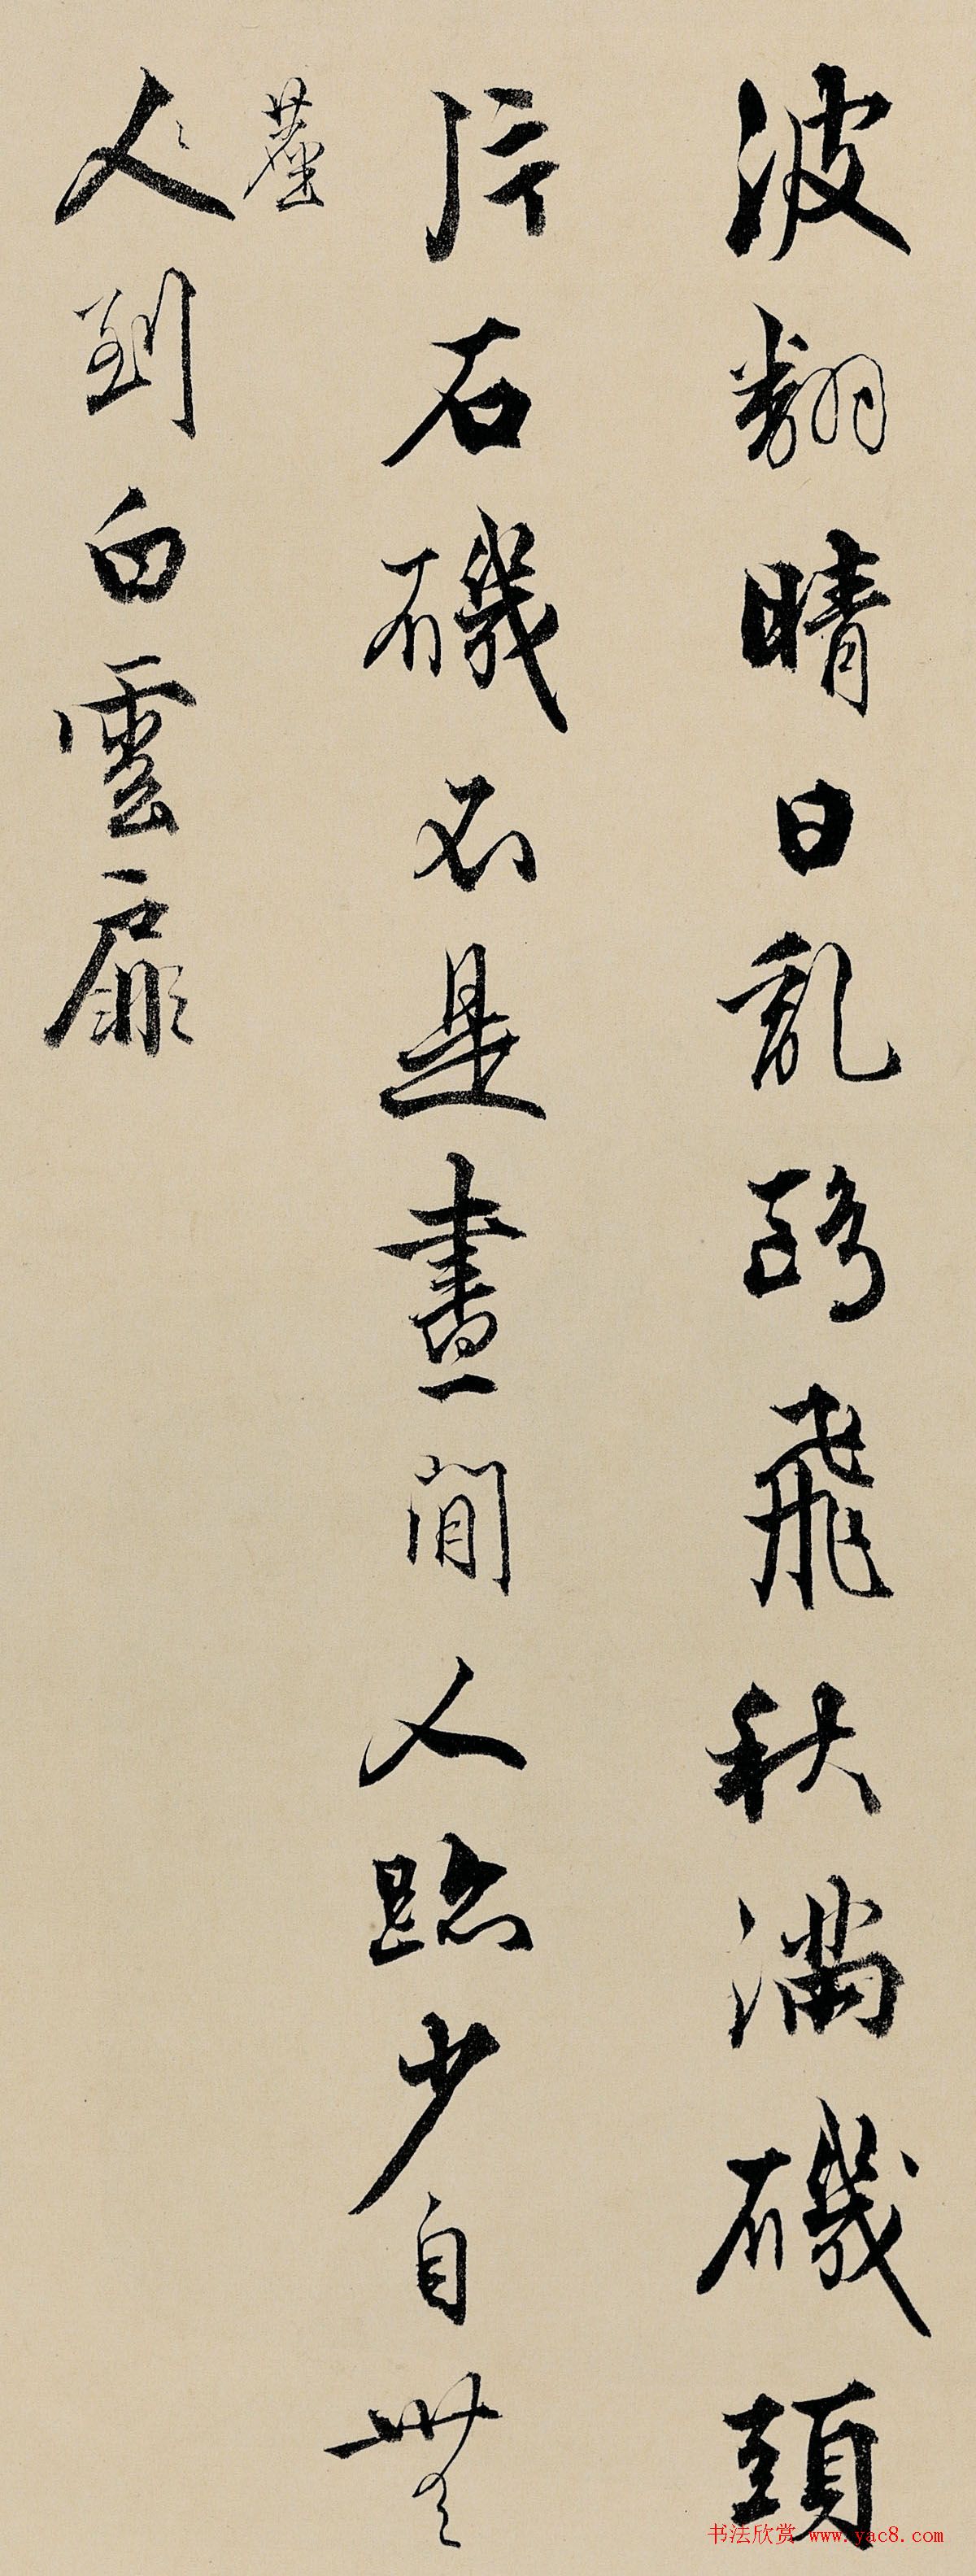 波翻晴日乱鷗飛秋滿磯頭
片石磯不是晝閒人跡少自無
塵
人到白雲扉
书法欣赏 www.yac8.com